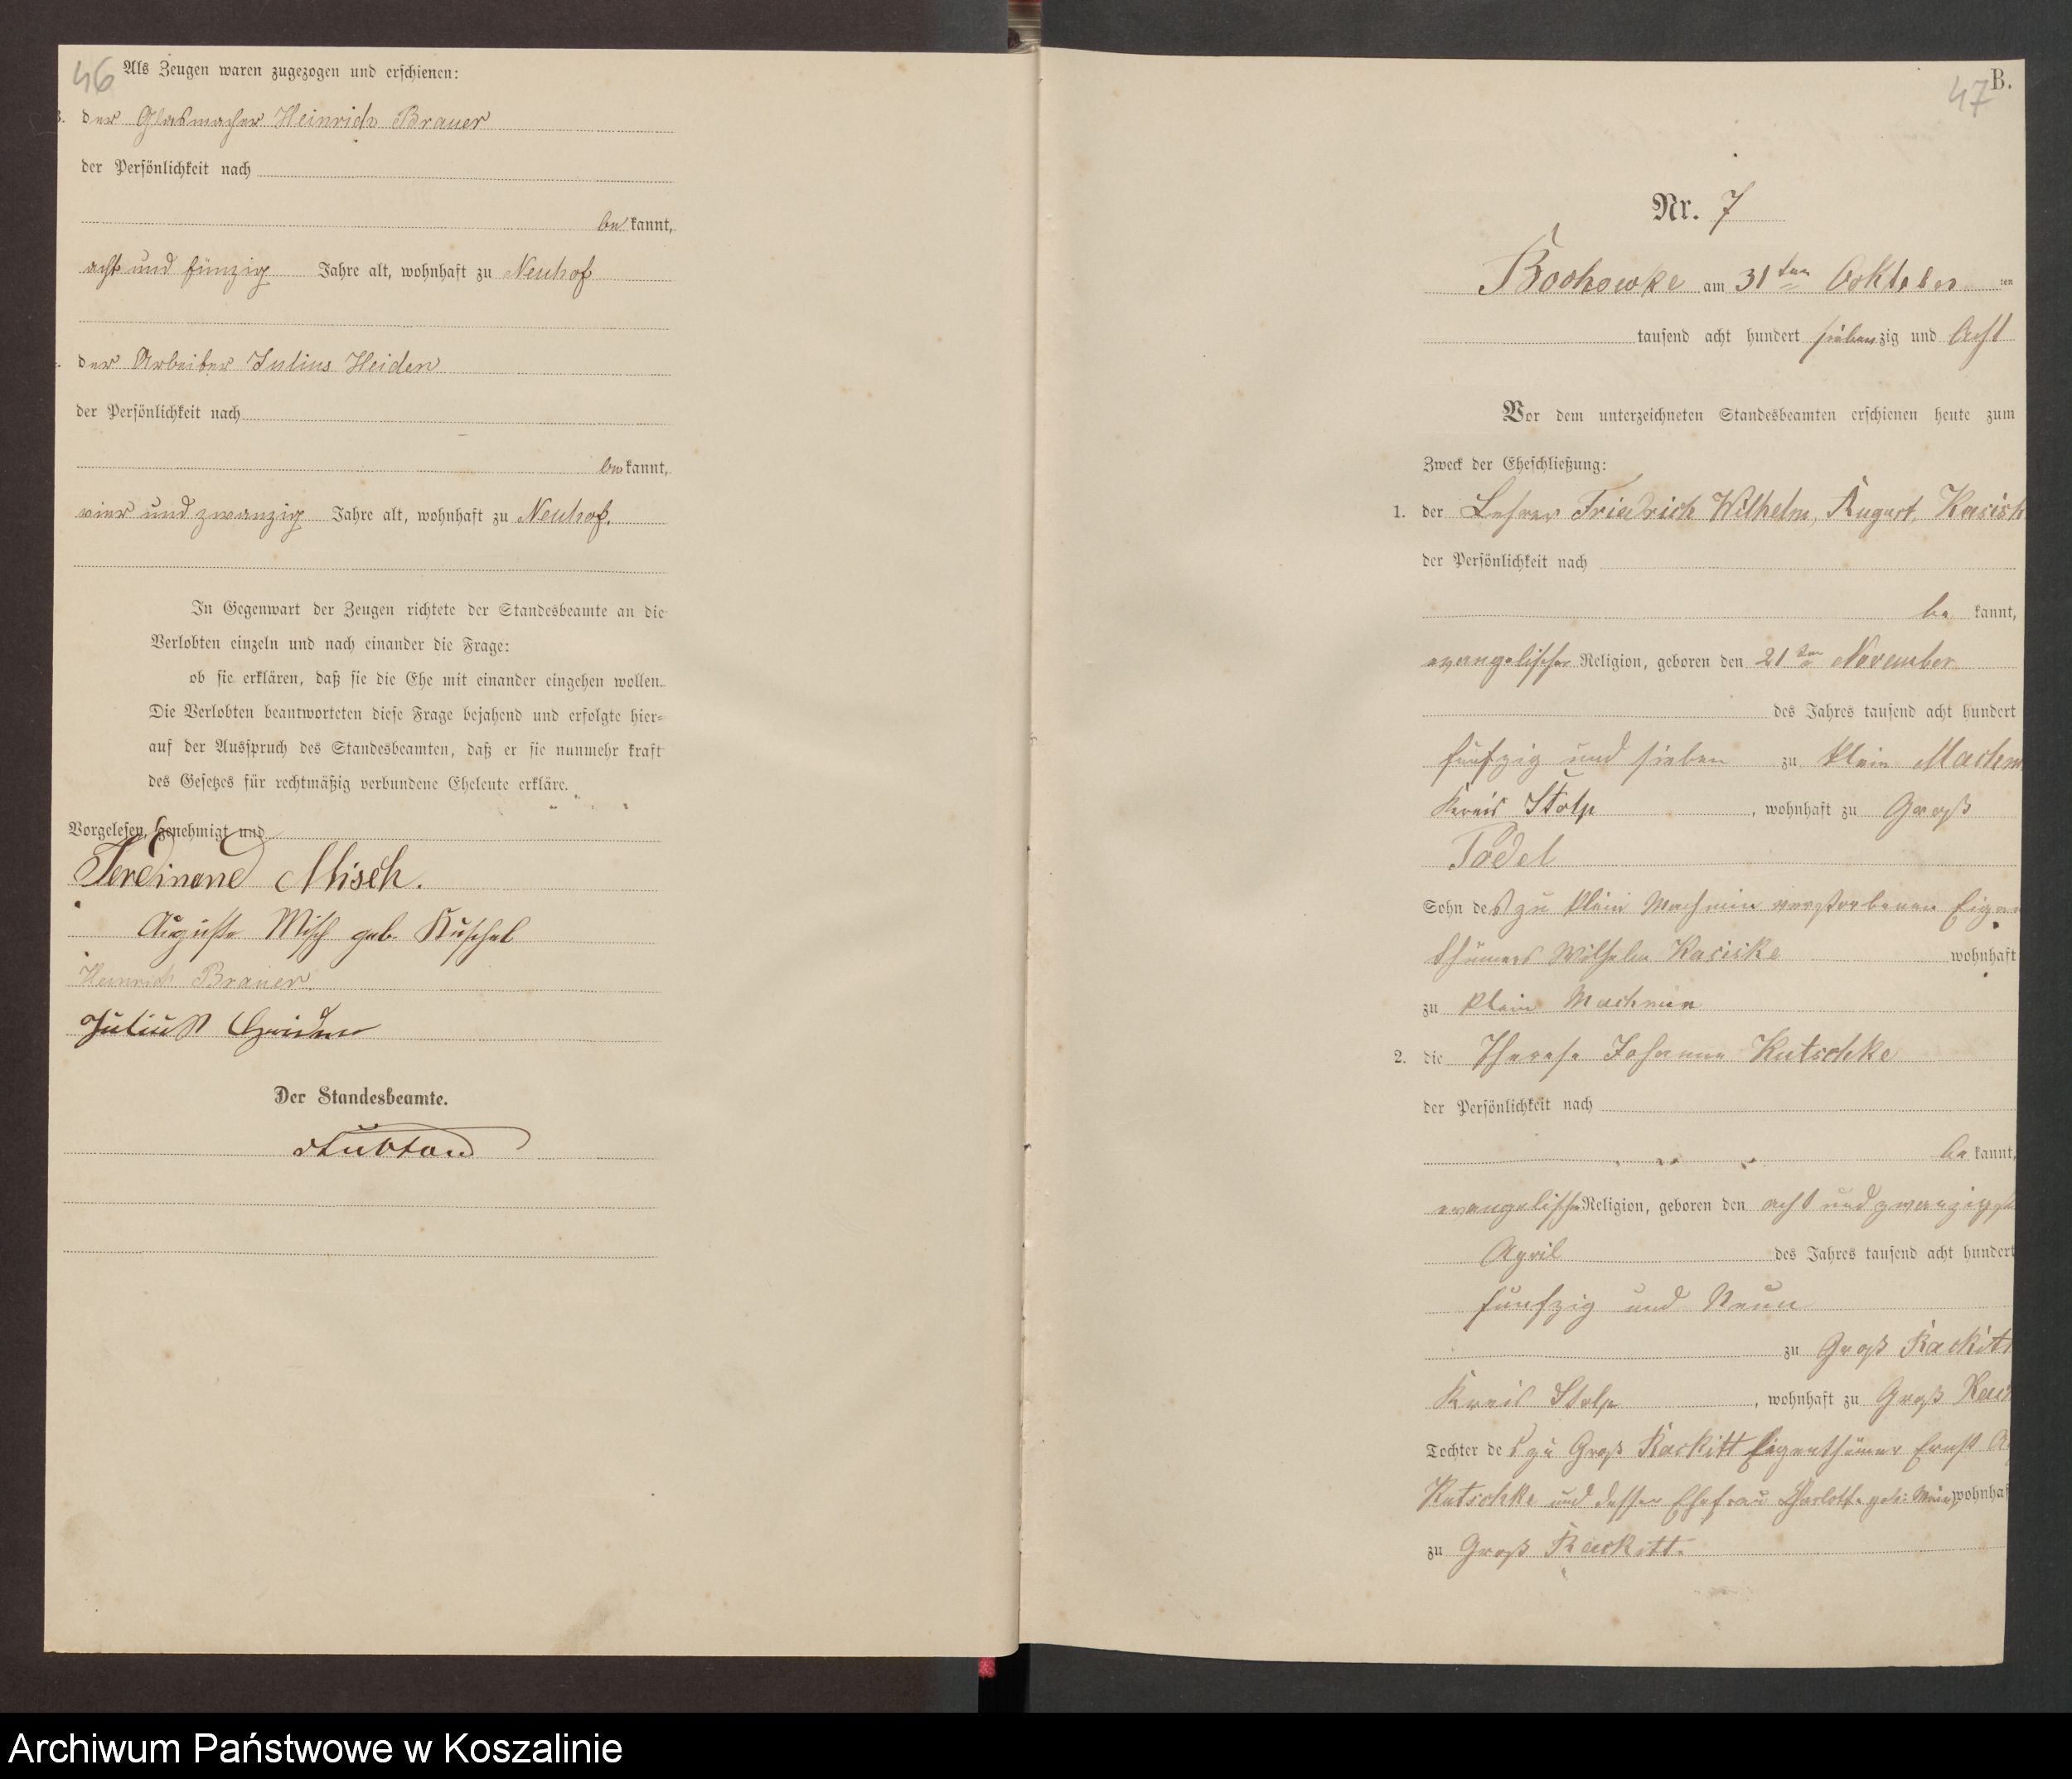 46
Als Zeugen waren zugezogen und erschienen:
3. der Glasmacher Heinrich Brauer
der Persönlichkeit nach
be kannt,
acht und fünzig Jahre alt, wohnhaft zu Neuhof
der Arbeiter Julius Heiden
der Persönlichkeit nach
be kannt,
vier und zwanzig Jahre alt, wohnhaft zu Neuhof.
In Gegenwart der Zeugen richtete der Standesbeamte an die
Verlobten einzeln und nach einander die Frage:
ob sie erklären, daß sie die Ehe mit einander eingehen wollen.
Die Verlobten beantworteten diese Frage bejahend und erfolgte hier-
auf der Ausspruch des Standesbeamten, daß er sie nunmehr kraft
des Gesetzes für rechtmäßig verbundene Eheleute erkläre.
Vorgelesen, genehmigt und
Ferdinand Misch.
Auguste Misch geb. Kuschel
Heinrich Brauer.
Julius Heiden
Der Standesbeamte.
47
B.
Nr. 7
Bochowke am 31ten Ocktober ten
tausend acht hundert siebenzig und Acht
Vor dem unterzeichneten Standesbeamten erschienen heute zum
Zweck der Eheschließung:
1. der Lehrer Friedrich Wilhelm, August, Kasisk
der Persönlichkeit nach
be kannt,
evangelischer Religion, geboren den 21ten November
des Jahres tausend acht hundert
fünfzig und sieben zu Klein Machm
Kreis Stolp, wohnhaft zu Groß
Podel
Sohn des zu Klein Machmin verstorbenen Eigen
thümers Wilhelm Kasiske wohnhaft
zu Klein Machmin
2. die Therese Johanne Kutschke
der Persönlichkeit nach
be kannt,
evangelischer Religion, geboren den acht und zwanzigst
April des Jahres tausend acht hundert
fünfzig und Neun
zu Groß Rackitt
Kreis Stolp, wohnhaft zu Groß Rack
Tochter des zu Groß Rackitt Eigenthümer Ernst
Kutschke und dessen Ehefrau Charlotte geb: wohnhaf
zu Groß Rackitt.
Archiwum Państwowe w Koszalinie